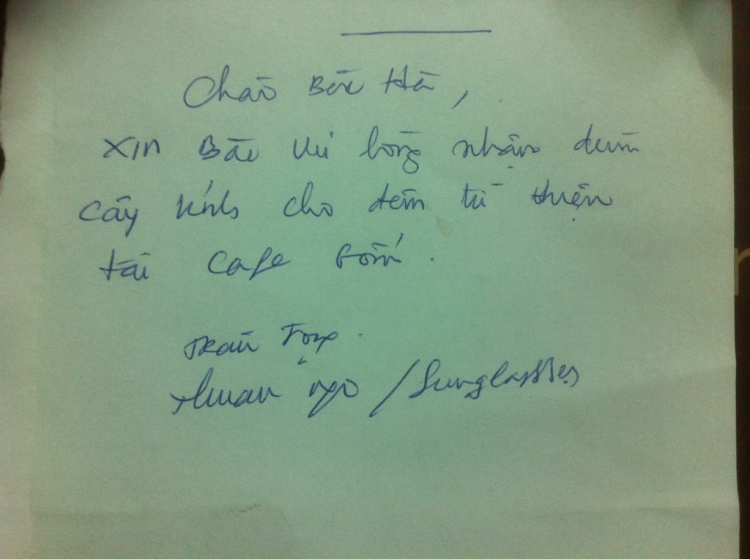 Chào Bác Hà,
Xin Bác vui lòng nhận dùm
cây kính cho đêm từ thiện
tại cafe Gốm.
Trân Trọng.
Thuan Ngo / Sunglasses